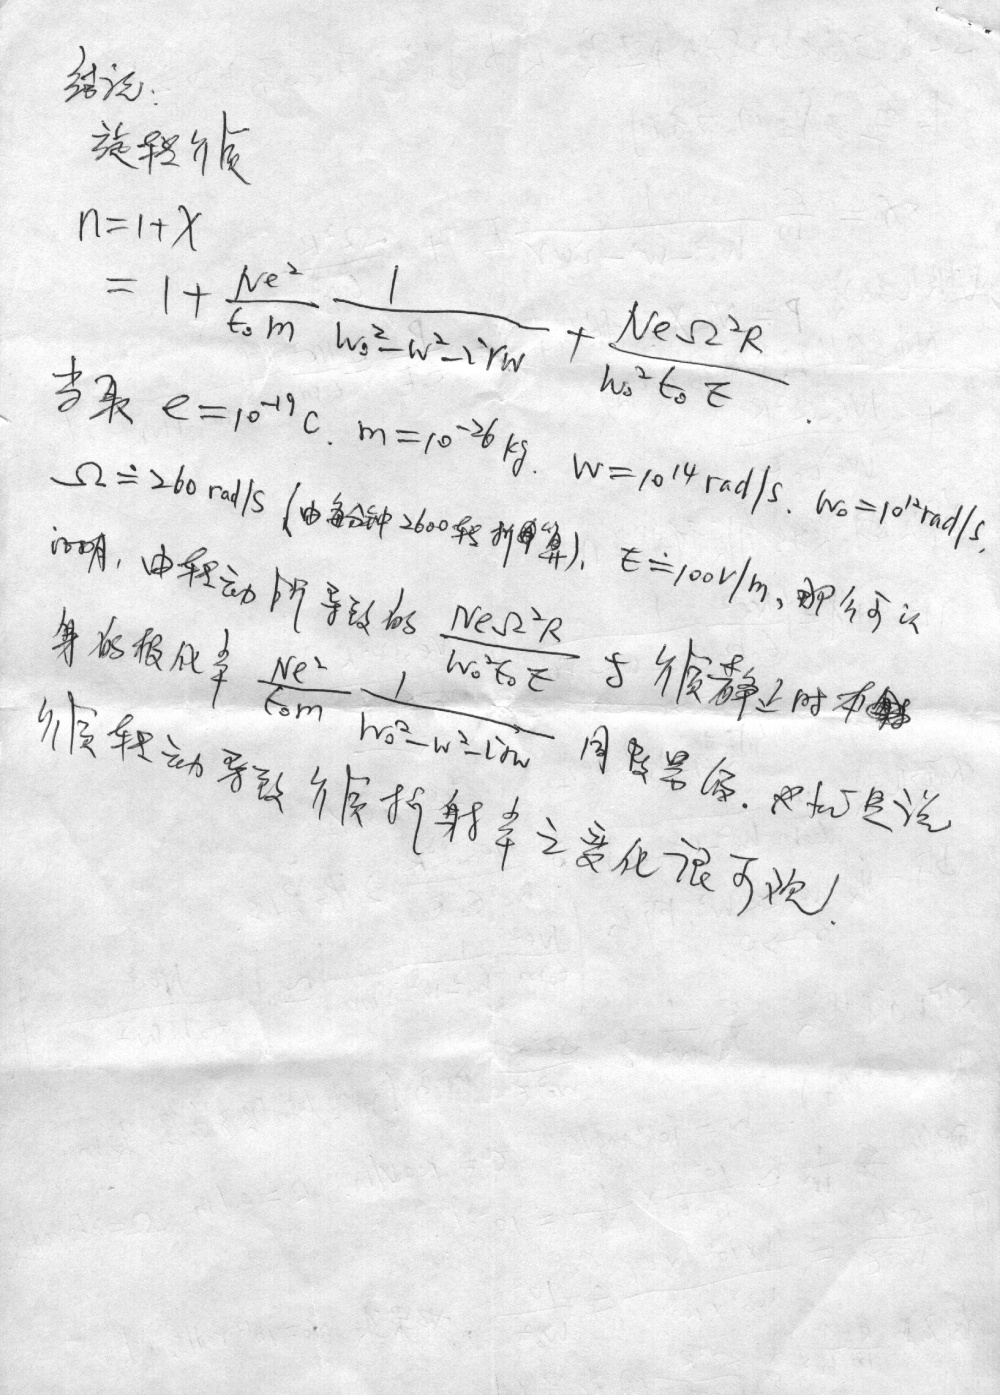 结论:
旋转介质
n=1+χ
= 1+ \frac{Ne²}{ε₀m} \frac{1}{ω₀²-ω²-iγω} + \frac{NeΩ²R}{ω₀²ε₀E}.
当取 e=10⁻¹⁹C. m=10⁻²⁶kg. ω=10¹⁴rad/s. ω₀=10¹²rad/s,
Ω≐260rad/s (由每分钟2600转折算), E≐100V/m, 那么可以
证明, 由转动所导致的 \frac{NeΩ²R}{ω₀²ε₀E} 与介质静止时本
身的极化率 \frac{Ne²}{ε₀m} \frac{1}{ω₀²-ω²-iγω} 同数量级. 也就是说
介质转动导致介质折射率之变化很可观!